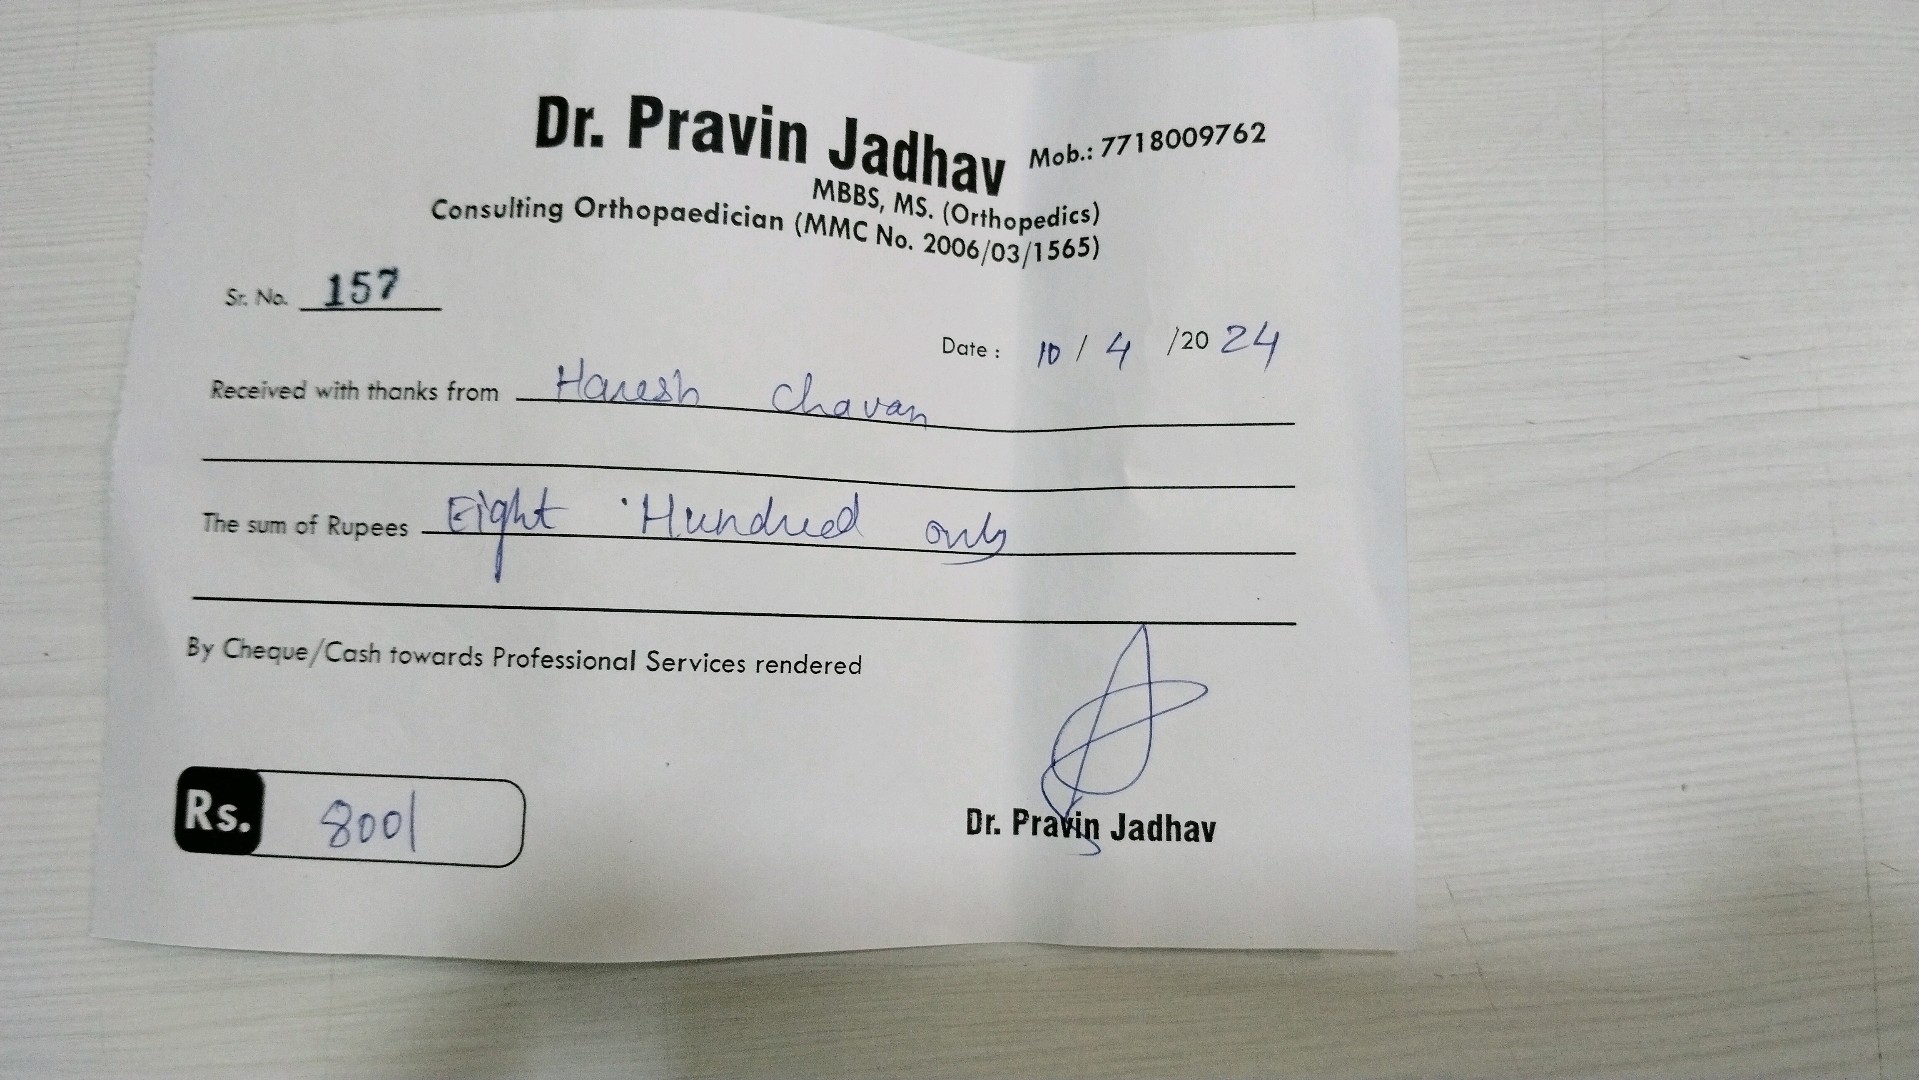 Dr. Pravin Jadhav Mob.: 7718009762
MBBS, MS. (Orthopedics)
Consulting Orthopaedician (MMC No. 2006/03/1565)
Sr. No. 157
Date : 10 / 4 /20 24
Received with thanks from Haresh Chavan
The sum of Rupees Eight Hundred only
By Cheque/Cash towards Professional Services rendered
Rs. 800/
Dr. Pravin Jadhav